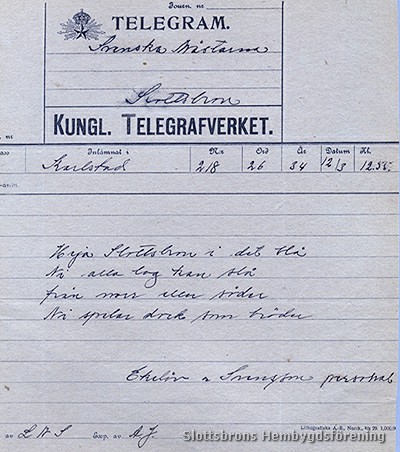 Journ. nr
TELEGRAM.
Svenska Mästarna
Slottsbron
KUNGL. TELEGRAFVERKET.
nr
Inlämnat i N:r Ord År Datum Kl.
Karlstad 218 26 34 12/3 12.55
Heja Slottsbron i det blå
Ni alla lag kan slå
från norr eller söder
Ni spelar dock som bröder
Ekelöv & Svensson personal
Litografiska A.-B., Norrk.
av L N S Exp. av A J.
Slottsbrons Hembygdsförening